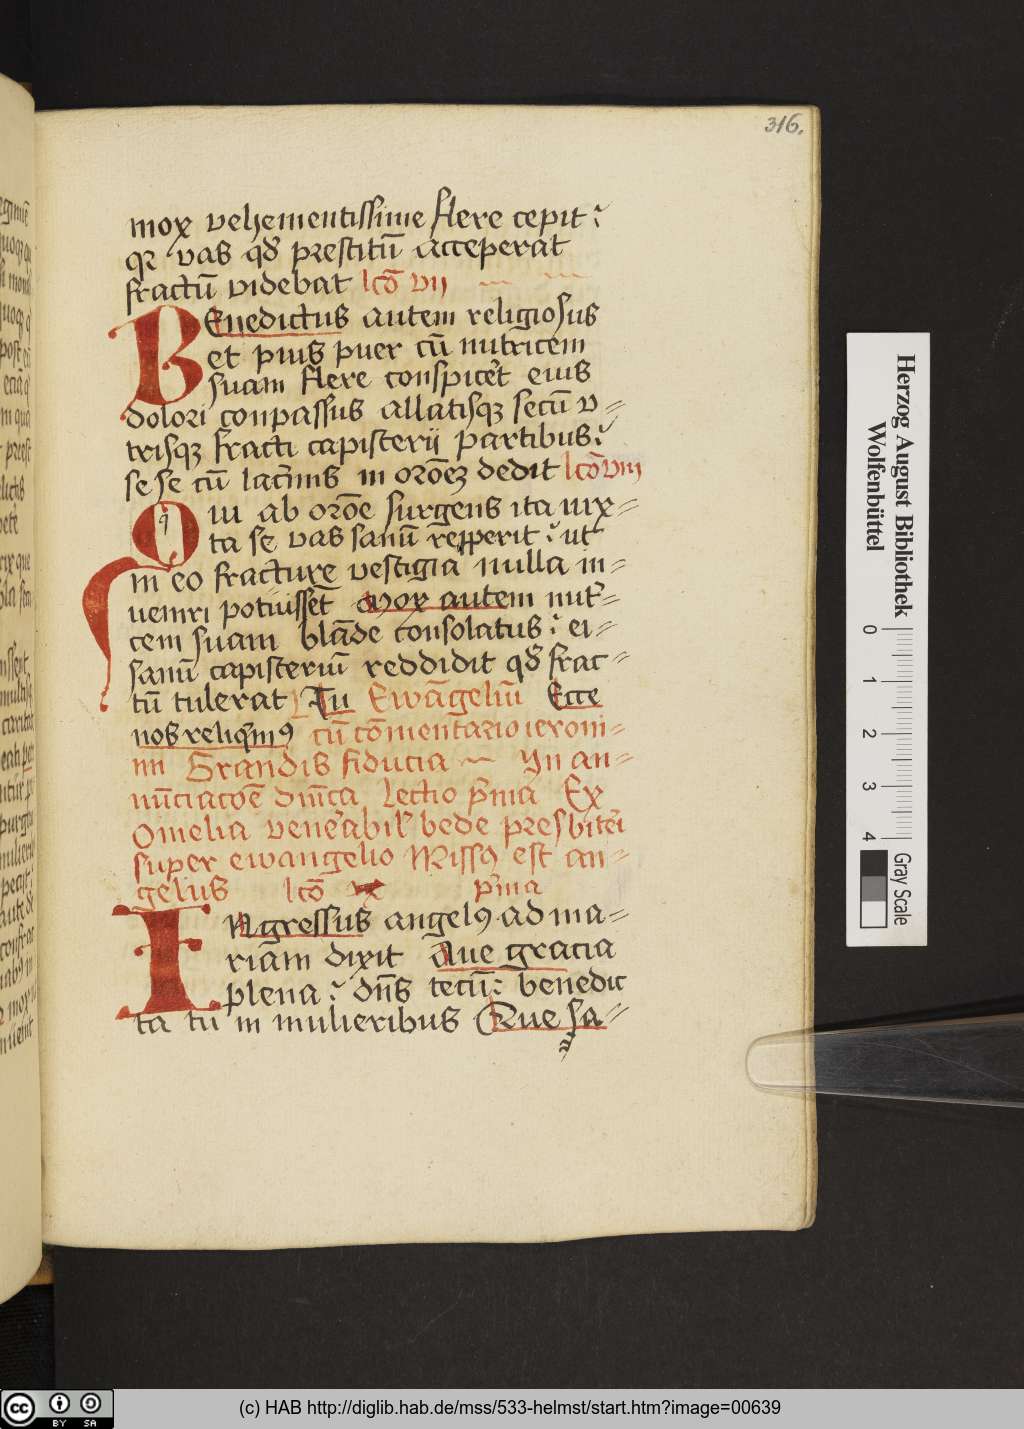 316.
mox vehementissime flere cepit
qr vas qd prestitū acceperat
fractū videbat lcō vii
BEnedictus autem religiosus
et pius puer cū nutricem
suam flere conspicet eius
dolori conpassus allatisqz secū v=
trisqz fracti capisterij partibus
sese cū lacmis in orōez dedit lcō viii
Qui ab orōe surgens ita iux=
ta se vas sanū repperit ut
in eo fracture vestigia nulla in=
uenri potuisset mox autem nut=
cem suam blāde consolatus ei=
sanū capisteriū reddidit qd frac=
tū tulerat Tu Ewāgeliū Ecce
nos reliqim9 cū cōmentario ieroni=
mi Grandis fiducia In an=
nūciacōe dnīca Lectio pma Ex
Omelia venerabil bede presbiteri
super ewangelio Miss9 est an=
gelus lcō pma
INgressus angel9 ad ma=
riam dixit Aue gracia
plena dns tecū benedic
ta tu in mulieribus Que sa=
Herzog August Bibliothek
Wolfenbüttel
0 1 2 3 4
Gray Scale
cc BY SA
(c) HAB http://diglib.hab.de/mss/533-helmst/start.htm?image=00639